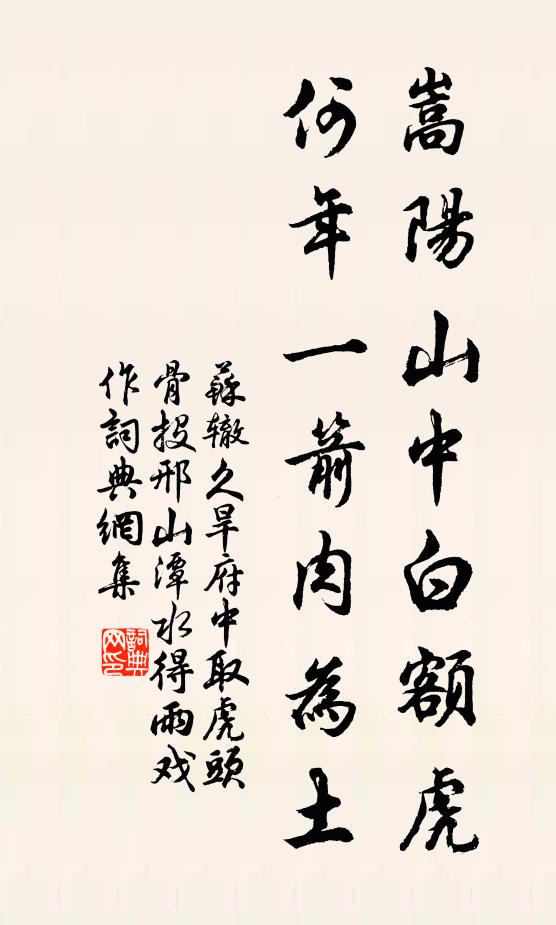 嵩陽山中白額虎
何年一箭肉為土
蘇辙久旱府中取虎頭
骨投邢山潭水得雨戏
作詞典網集
詞典
网印